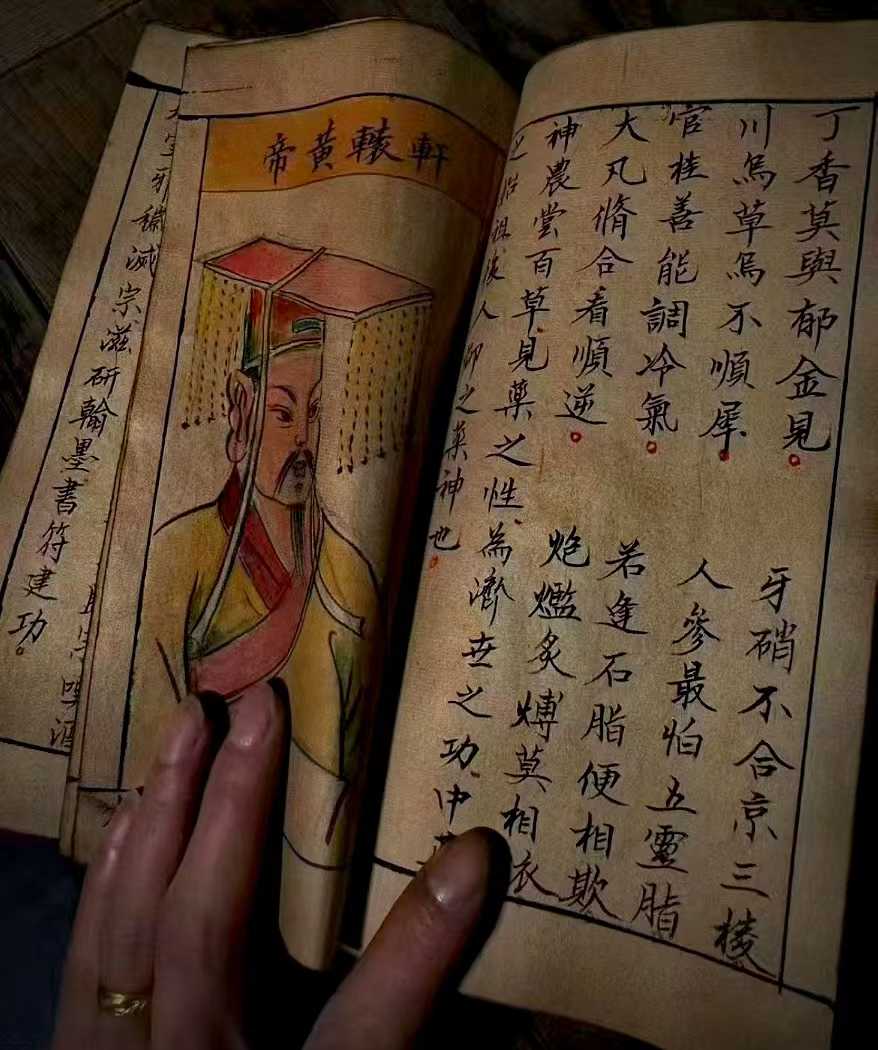 丁香莫與郁金見 牙硝不合京三稜
川烏草烏不順犀 人參最怕五靈脂
官桂善能調冷氣 若逢石脂便相欺
大凡脩合看順逆 炮爁炙煿莫相衣
神農嘗百草見藥之性為濟世之功中
之始祖後人卬之藥神也
軒轅黃帝
滅宗滋研翰墨書符建功